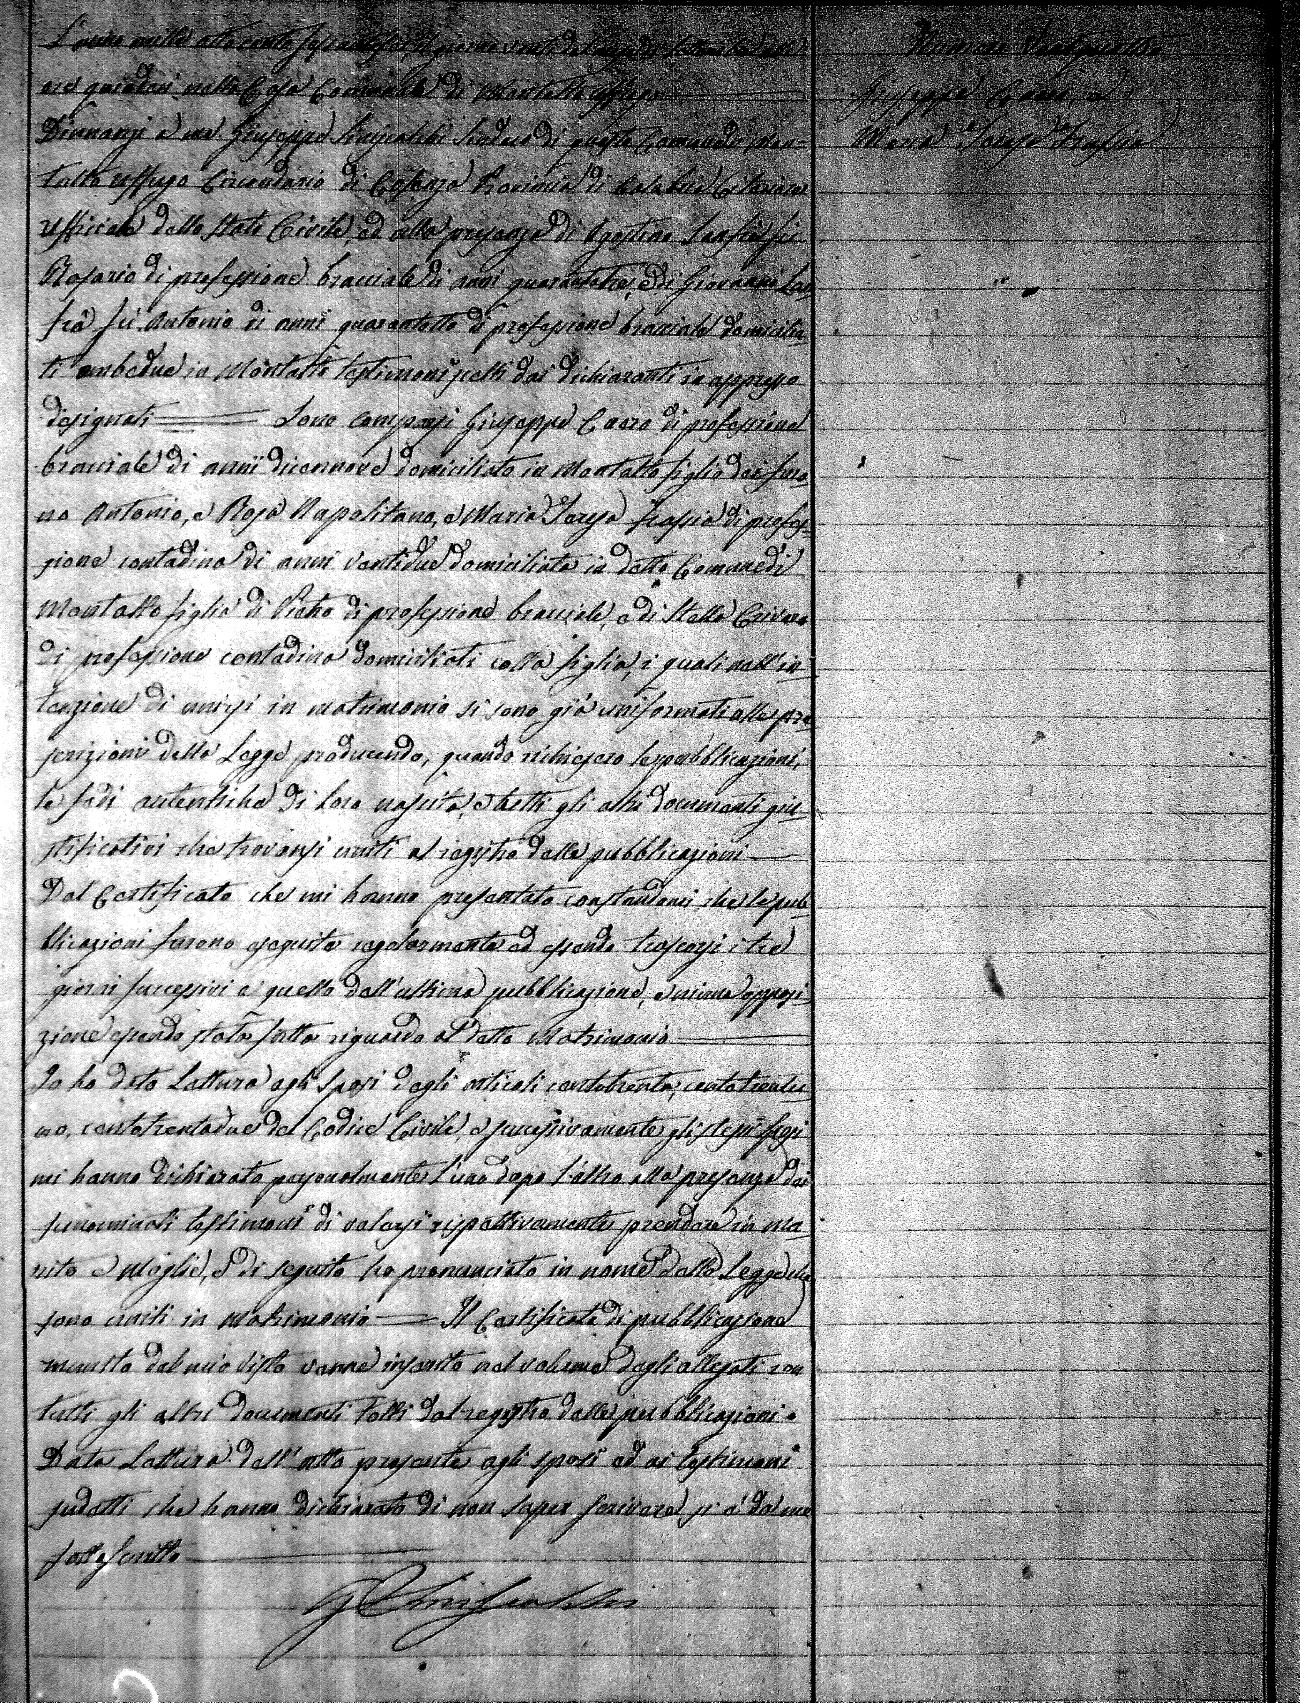 L'anno mille ottocento sessantasei, il giorno venti del mese di Settembre alle
ore quindici nella Casa Comunale di Montalto Uffugo
Dinnanzi a me Giuseppe Sindaco di questo Comune di Mon-
talto Uffugo Circondario di Cosenza Provincia di Calabria Citeriore
Uffiziale dello Stato Civile, ed alla presenza di Agostino fu
Rosario di professione bracciale di anni quarantatre, e di Giovanni
fu Antonio di anni quarantotto di professione bracciale domicilia-
ti ambedue in Montalto testimoni scelti dai dichiaranti in appresso
designati Sono comparsi Giuseppe di professione
bracciale di anni diecennove domiciliato in Montalto figlio dei furo-
no Antonio, e Rosa Napolitano, e Maria Teresa di profes-
sione contadina di anni ventidue domiciliata in detto Comune di
Montalto figlia di Pietro di professione bracciale, e di Stella
di professione contadina domiciliati colla figlia, i quali nell'in-
tenzione di unirsi in matrimonio si sono già uniformati alle pre-
scrizioni della Legge producendo, quando richiesero le pubblicazioni,
le fedi autentiche di loro nascita, e tutti gli altri documenti giu-
stificativi che trovansi uniti al registro delle pubblicazioni
Dal Certificato che mi hanno presentato constandomi che le pub-
blicazioni furono eseguite regolarmente ed essendo trascorsi i tre
giorni successivi a quello dell'ultima pubblicazione, e niuna opposi-
zione essendo stata fatta riguardo al detto Matrimonio
Io ho dato Lettura agli sposi degli articoli centotrenta, centotrentu-
no, centotrentadue del Codice Civile, e successivamente gli stessi sposi
mi hanno dichiarato personalmente l'uno dopo l'altro alla presenza dei
sunominati testimoni di volersi rispettivamente prendere in Ma-
rito e Moglie, e di seguito ho pronunciato in nome della Legge che
sono uniti in Matrimonio Il Certificato di pubblicazione
munito del mio visto venne inserito nel volume degli allegati con
tutti gli altri documenti tolti dal registro delle pubblicazioni
Data Lettura dell'atto presente agli sposi ed ai testimoni
sudetti che hanno dichiarato di non saper scrivere si è da me
sottoscritto
Giuseppe
Maria Teresa